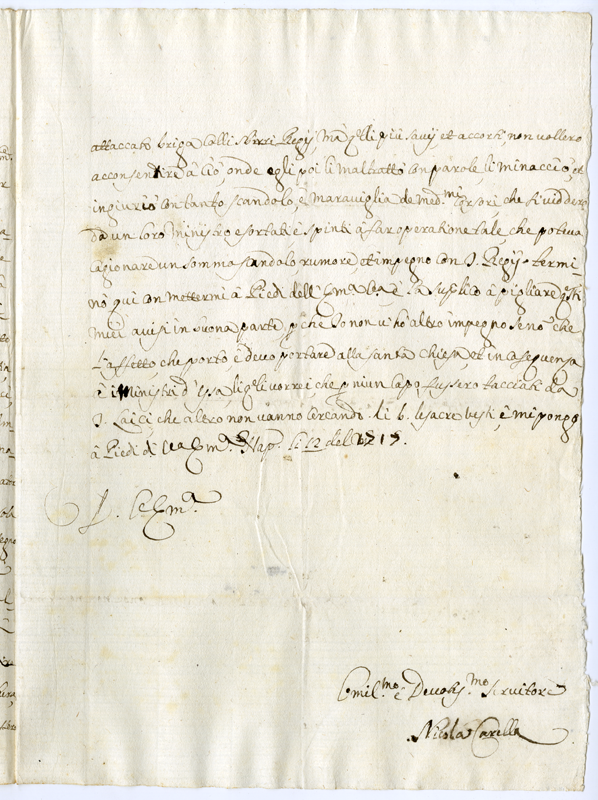 attaccato briga colli Regij, mà q.lli più savij et accorti, non vollero
acconsentire à ciò, onde egli poi li maltrattò con parole, li minacciò, et
ingiuriò con tanto scandolo, e maraviglia de med.mi che si viddero
da un loro ministro esortati, è spinti à far operatione tale che poteva
cagionare un sommo scandalo, rumore et impegno con i Regij. termi-
nò qui con mettermi à Piedi dell' Em.a è la supplico à pigliare q.sti
miei avisi in buona parte, p.che Io non vi hò altro impegno se no' che
l'affetto che porto, è devo portare alla santa chiesa, et in
è i Ministri d'essa li q.li vorrei, che p niun capo fussero tacciati da
i Laici che altro non vanno cercando. li b. le sacre vesti, è mi pongo
à Piedi di Em.a Nap. li 12 dell 1715.
Em.a
Humil.mo è Devotis.mo servitore
Nicola Carella